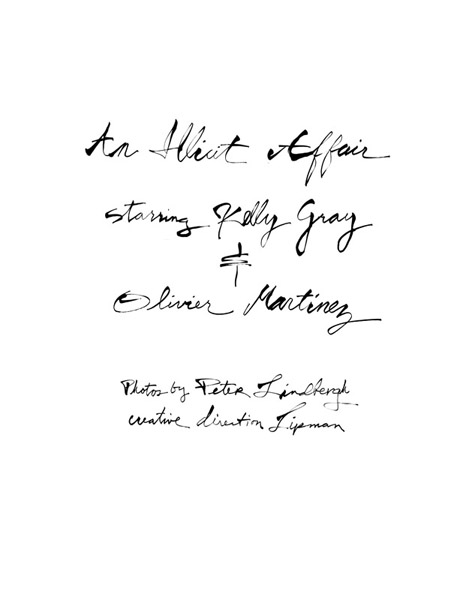 An Illicit Affair
starring Kelly Gray
&
Olivier Martinez
Photos by Peter Lindbergh
creative direction Lipman